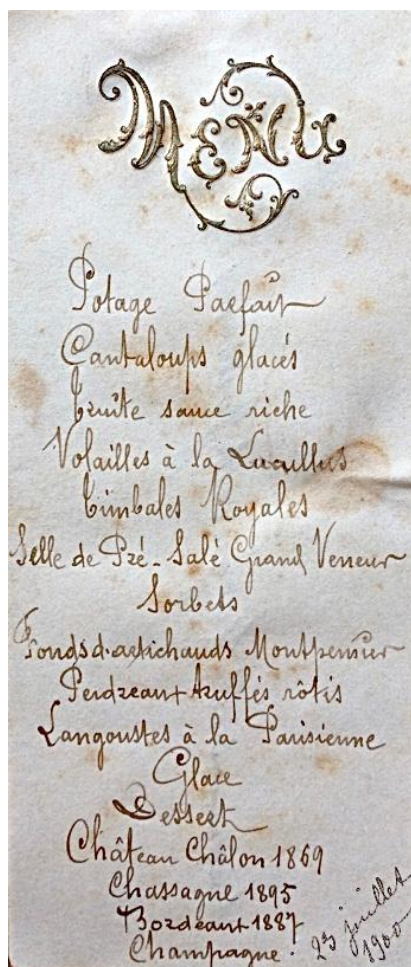 MENU
Potage Parfait
Cantaloups glacés
Truite sauce riche
Volailles à la Lucullus
Timbales Royales
Selle de Pré-Salé Grand Veneur
Sorbets
Fonds d'artichauds Montpensier
Perdreaux truffés rôtis
Langoustes à la Parisienne
Glace
Dessert
Château Châlon 1869
Chassagne 1895
Bordeaux 1887
Champagne.
23 juillet
1900